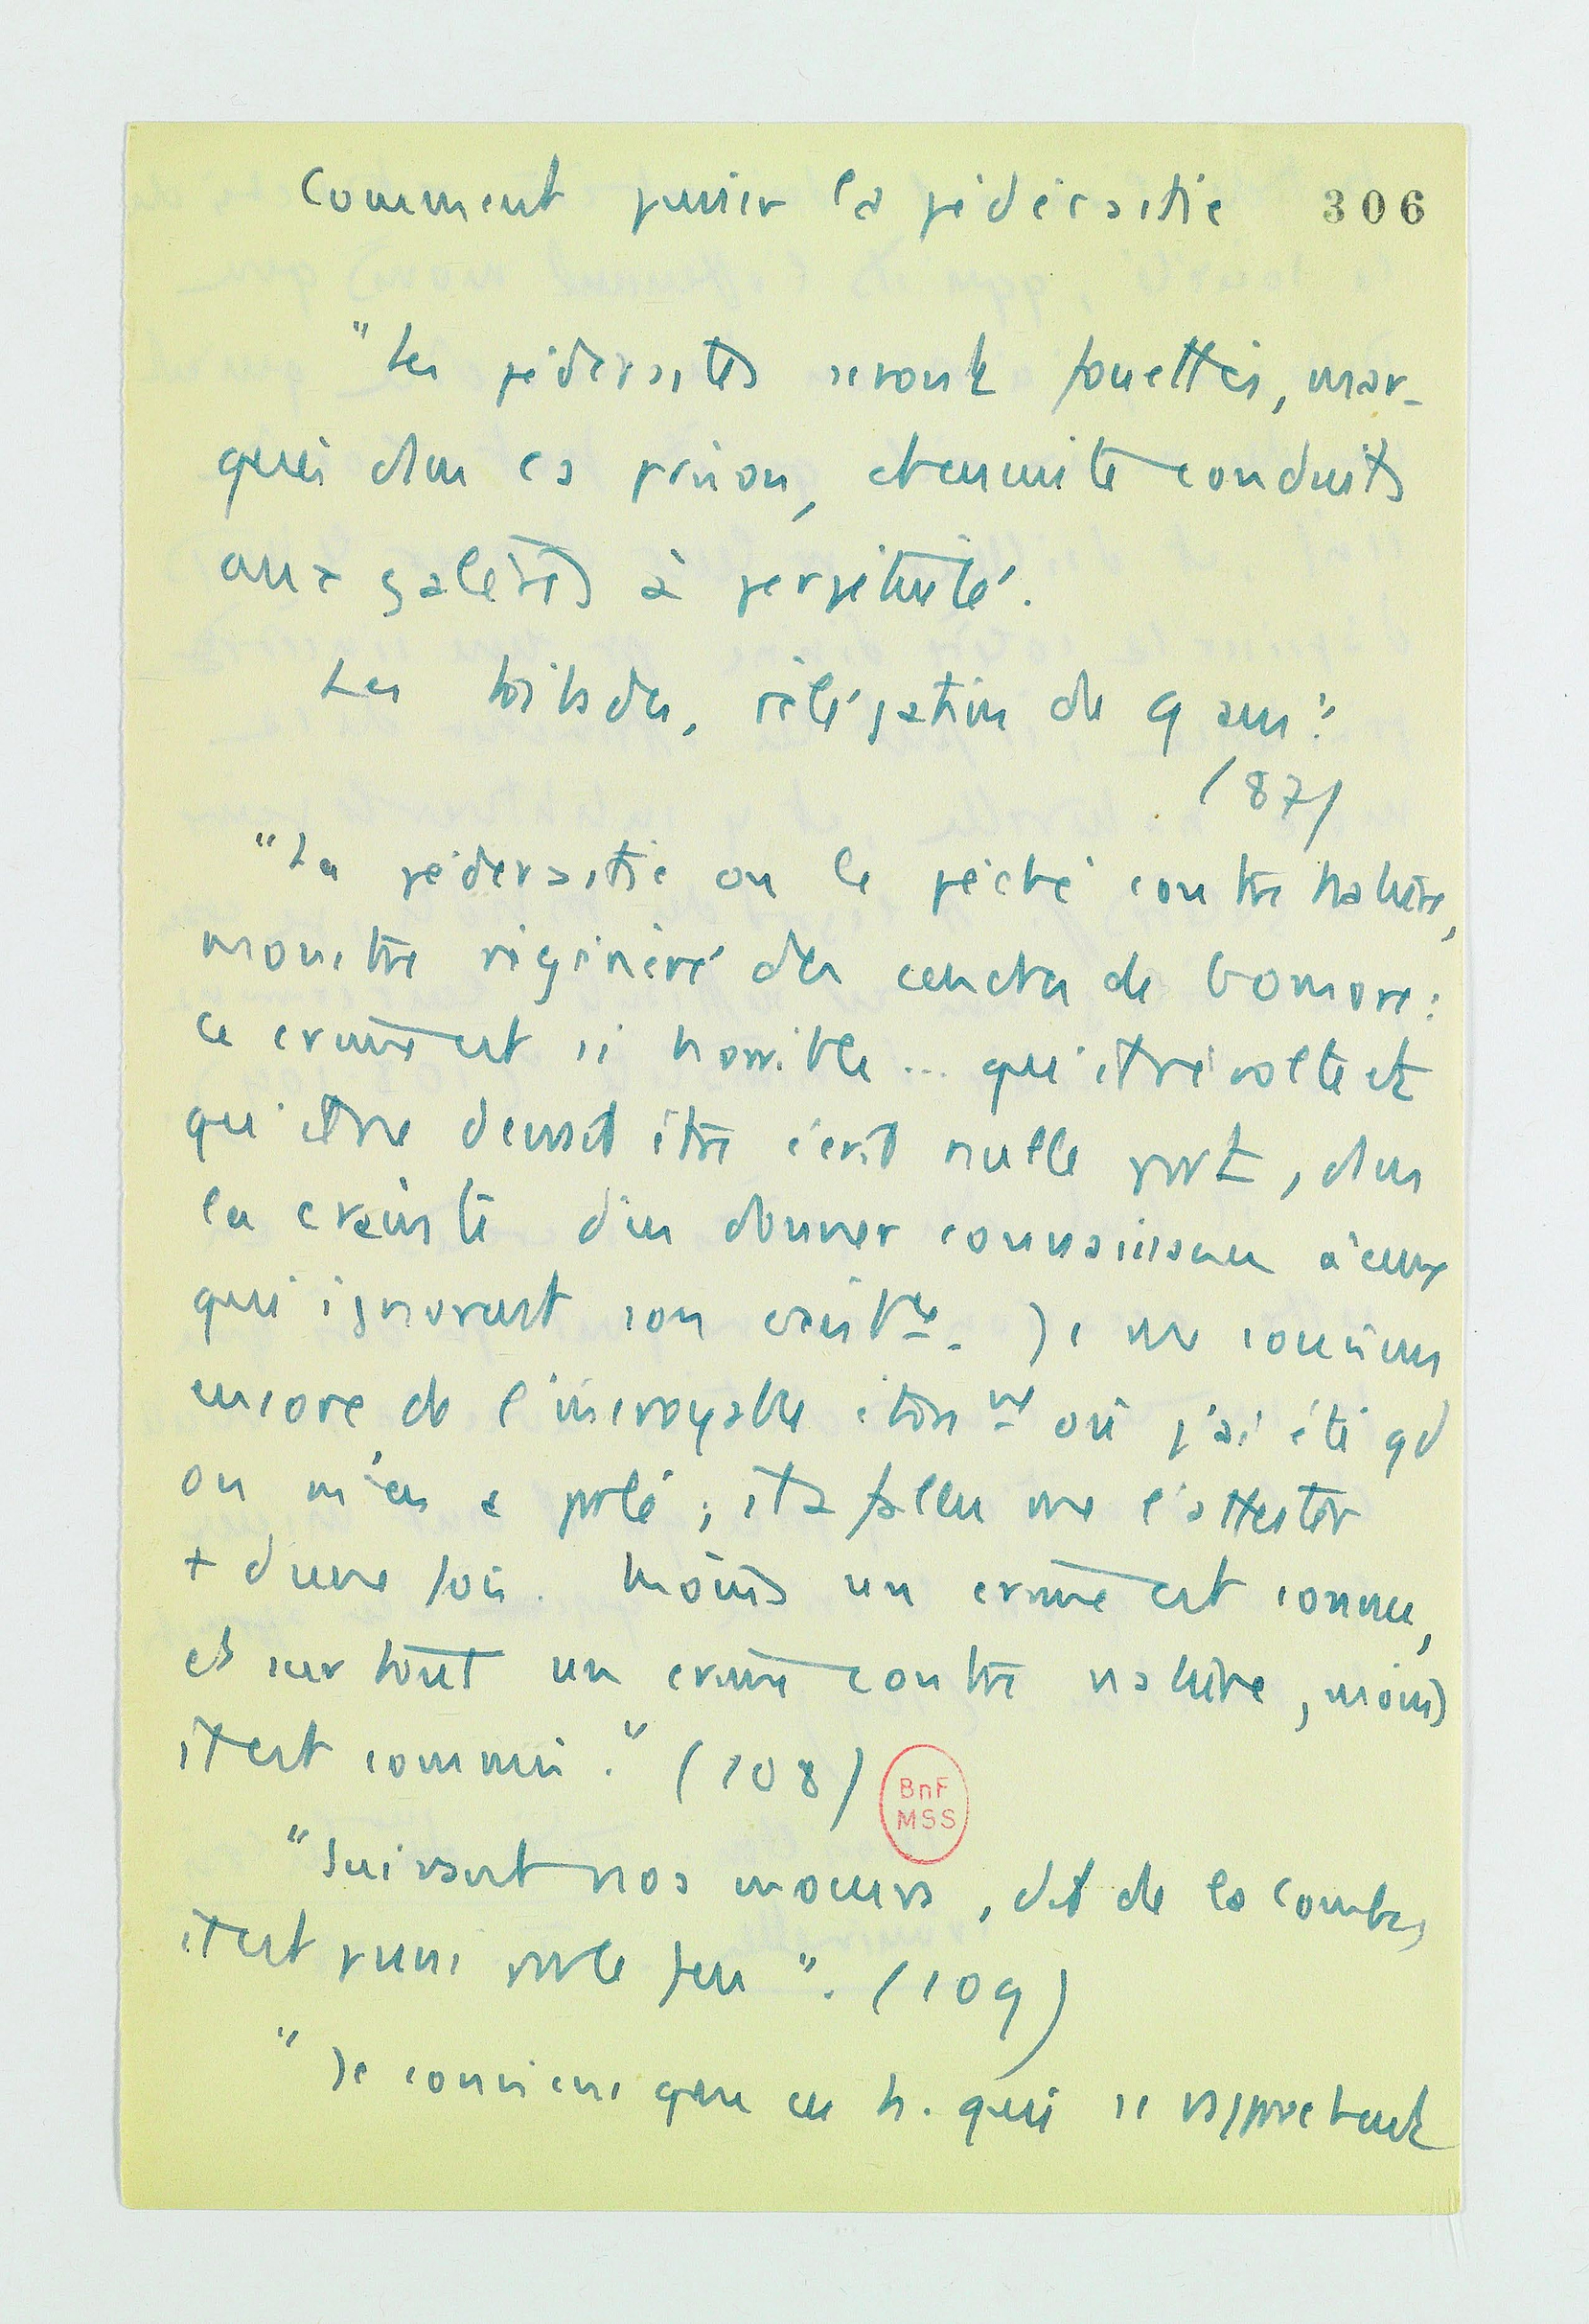 Comment punir la pédérastie 306
"Les pédérastes seront fouettés, mar-
qués dans la prison, et ensuite conduits
aux galères à perpétuité.
Les tribades, rélégation de 9 ans".
(87)
"La pédérastie ou le péché contre nature,
monstre régénéré des cendres de Gomore :
ce crime est si horrible... qu'il révolte et
qu'il ne devrait être écrit nulle part, dans
la crainte d'en donner connaissance à ceux
qui ignorent son existce. Je me souviens
encore de l'incroyable étonnt où j'ai été qd
on m'en a parlé ; il a fallu me l'attester
+ d'une fois. Moins un crime est connu,
et surtout un crime contre nature, moins
il est commis." (108)
BnF
MSS
"Suivant nos moeurs, dit de la Combe,
il est puni par le feu". (109)
"Je conviens que ces h. qui se rapprochent